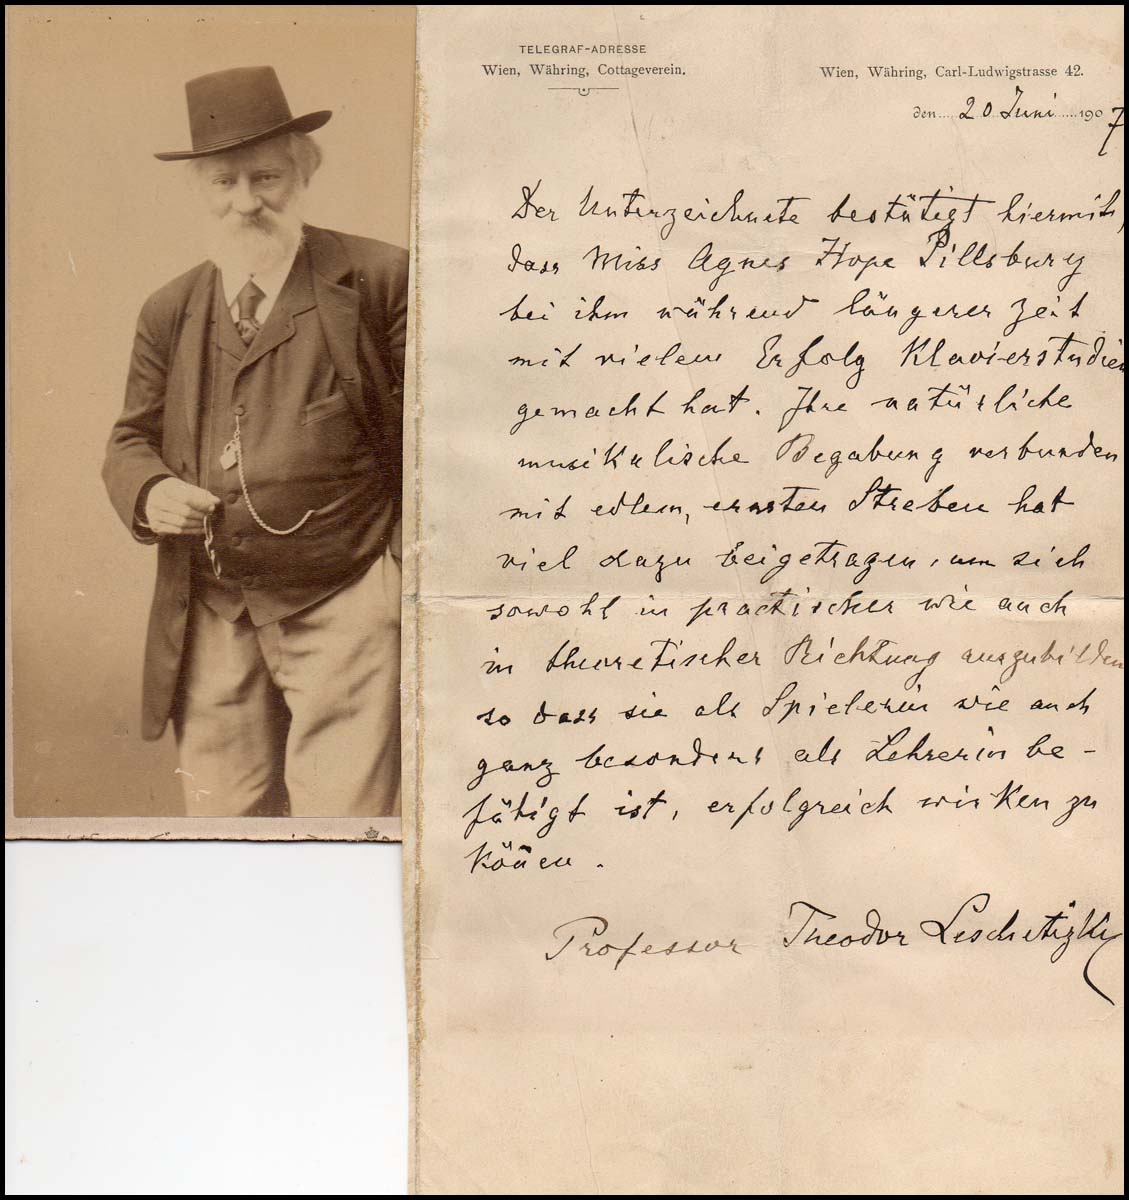 TELEGRAF-ADRESSE
Wien, Währing, Cottageverein.
Wien, Währing, Carl-Ludwigstrasse 42.
den 20 Juni 1907
Der Unterzeichnete bestätigt hiermit,
dass Miss Agnes Hope Pillsbury
bei ihm während längerer Zeit
mit vielem Erfolg Klavierstudien
gemacht hat. Ihre natürliche
musikalische Begabung verbunden
mit edlem, ernsten Streben hat
viel dazu beigetragen, um sich
sowohl in practischer wie auch
in theoretischer Richtung auszubilden
so dass sie als Spielerin wie auch
ganz besonders als Lehrerin be-
fähigt ist, erfolgreich wirken zu
können.
Professor Theodor Leschetizky